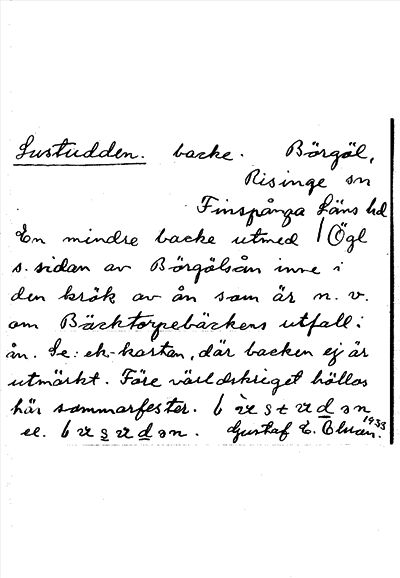 Lustudden. backe. Börgöl,
Risinge sn
Finspånga Läns hd
En mindre backe utmed / Ögl
s. sidan av Börgölsån inne i
den krök av ån som är n. v.
om Bäcktorpebäckens utfall i
ån. Se: ek-kartan, där backen ej är
utmärkt. Före världskriget höllos
här sommarfester.
el.
Gustaf E. 1933